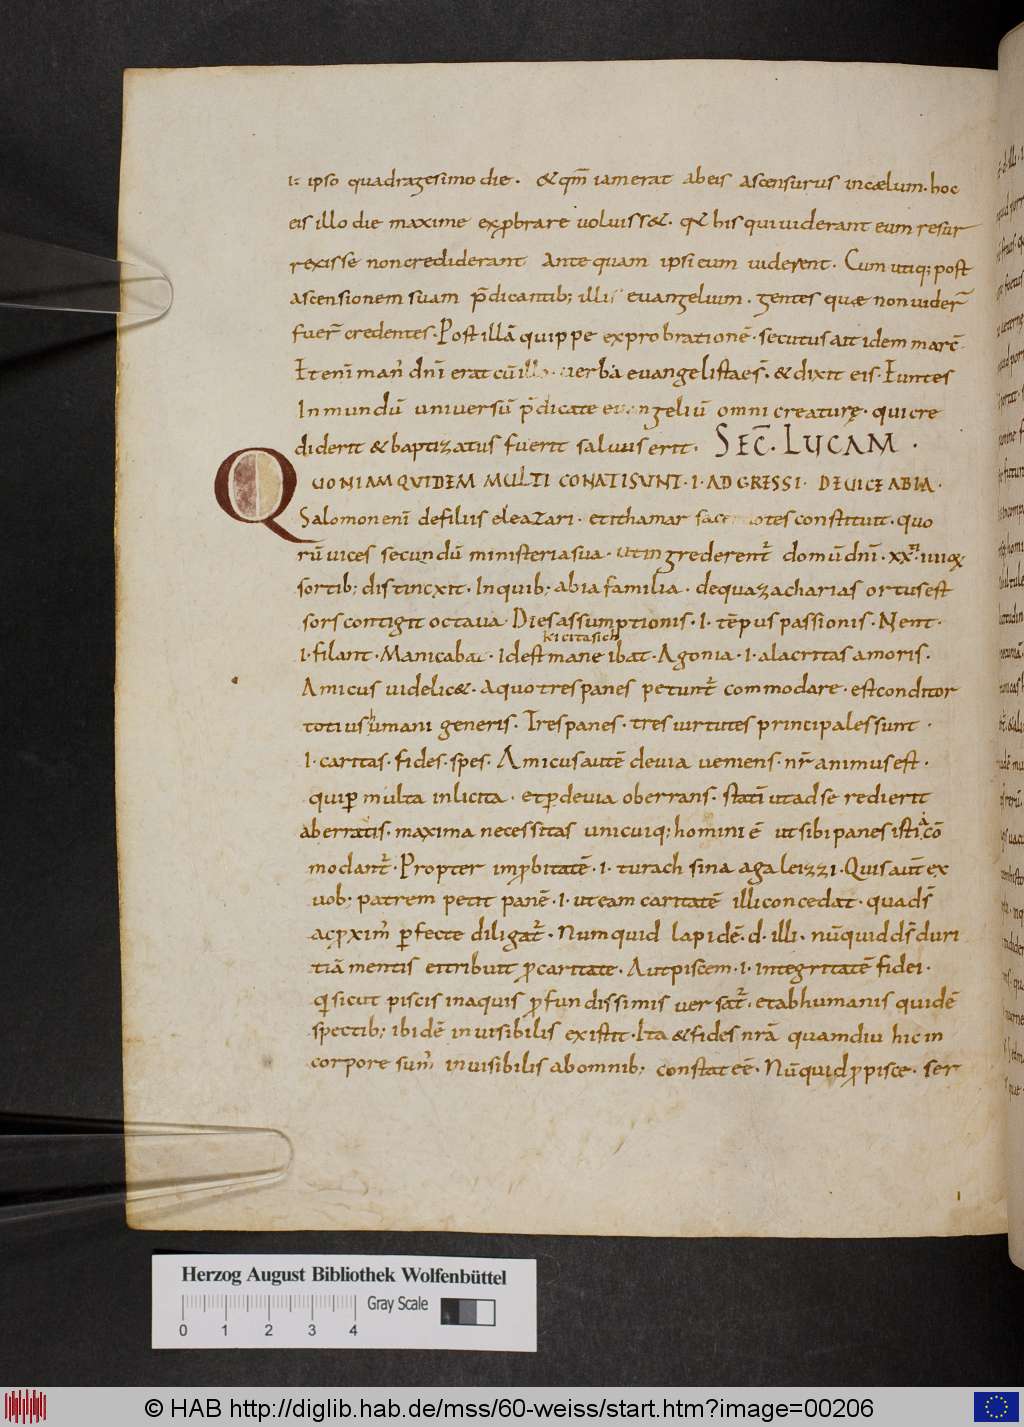 .i. ipso quadragesimo die. & qm̄ iam erat ab eis ascensurus in cælum. hoc
eis illo die maxime exp̱brare uoluiss&. qđ his qui uiderant eum resur
rexisse non crediderant Ante quam ipsi eum uiderent. Cum utiq; post
ascensionem suam p̄dicantib; illis euangelium. gentes quæ non uider̄
fuer̄ credentes. Post illā quippe exprobrationē. secutus ait idem marc̄.
Et enī man' dnī erat cū illo. uerba euangelistaēs. & dixit eis. Euntes
In mundū uniuersū p̄dicate euangeliū omni creaturę. qui cre
diderit & baptizatus fuerit saluus erit. SEC̄. LUCAM.
QUONIAM QUIDEM MULTI CONATI SUNT. I. ADGRESSI. DE UICE ABIA.
Salomon enī de filiis eleazari. et ithamar sacerdotes constituit. quo
rū uices secundū ministeria sua. ut ingrederent̄ domū dnī. xx. iiiior
sortib; distinexit. In quib; abia familia. de qua zacharias ortus est
sors contigit octaua Dies assumptionis. I. tēpus passionis. Nent.
.i. filant. Manicabat. Id est mane ibat. Agonia. I. alacritas amoris.
kicitasich
Amicus uidelic&. A quo tres panes petunt̄ commodare. est conditor
totius humani generis. Tres panes. tres uirtutes principales sunt.
I. caritas. fides. spes. Amicus autē de uia ueniens. nr̄ animus est.
qui ꝑ multa inlicita. et ꝑ deuia oberrans. statī ut ad se redierit
aberratis. maxima necessitas unicuiq; homini ē ut sibi panes isti a cō
modant̄. Propter imꝓbitatē. .i. turach sina agaleizzi. Quis autē ex
uob; patrem petit panē. I. ut eam caritatē illi concedat. qua dś
ac ꝓxim' ꝑfecte diligat̄. Numquid lapidē. d. illi. nūquid dś duri
tiā mentis ei tribuit ꝓ caritate. Aut piscem. I. integritatē fidei.
q̇ sicut piscis in aquis ꝓfundissimis uersat̄. et ab humanis quidē
spectib; ibidē inuisibilis existit. Ita & fides nr̄a quamdiu hic in
corpore sum' inuisibilis ab omnib; constat eē. Nūquid ꝓ pisce. ser
Herzog August Bibliothek Wolfenbüttel
Gray Scale
0 1 2 3 4
© HAB http://diglib.hab.de/mss/60-weiss/start.htm?image=00206